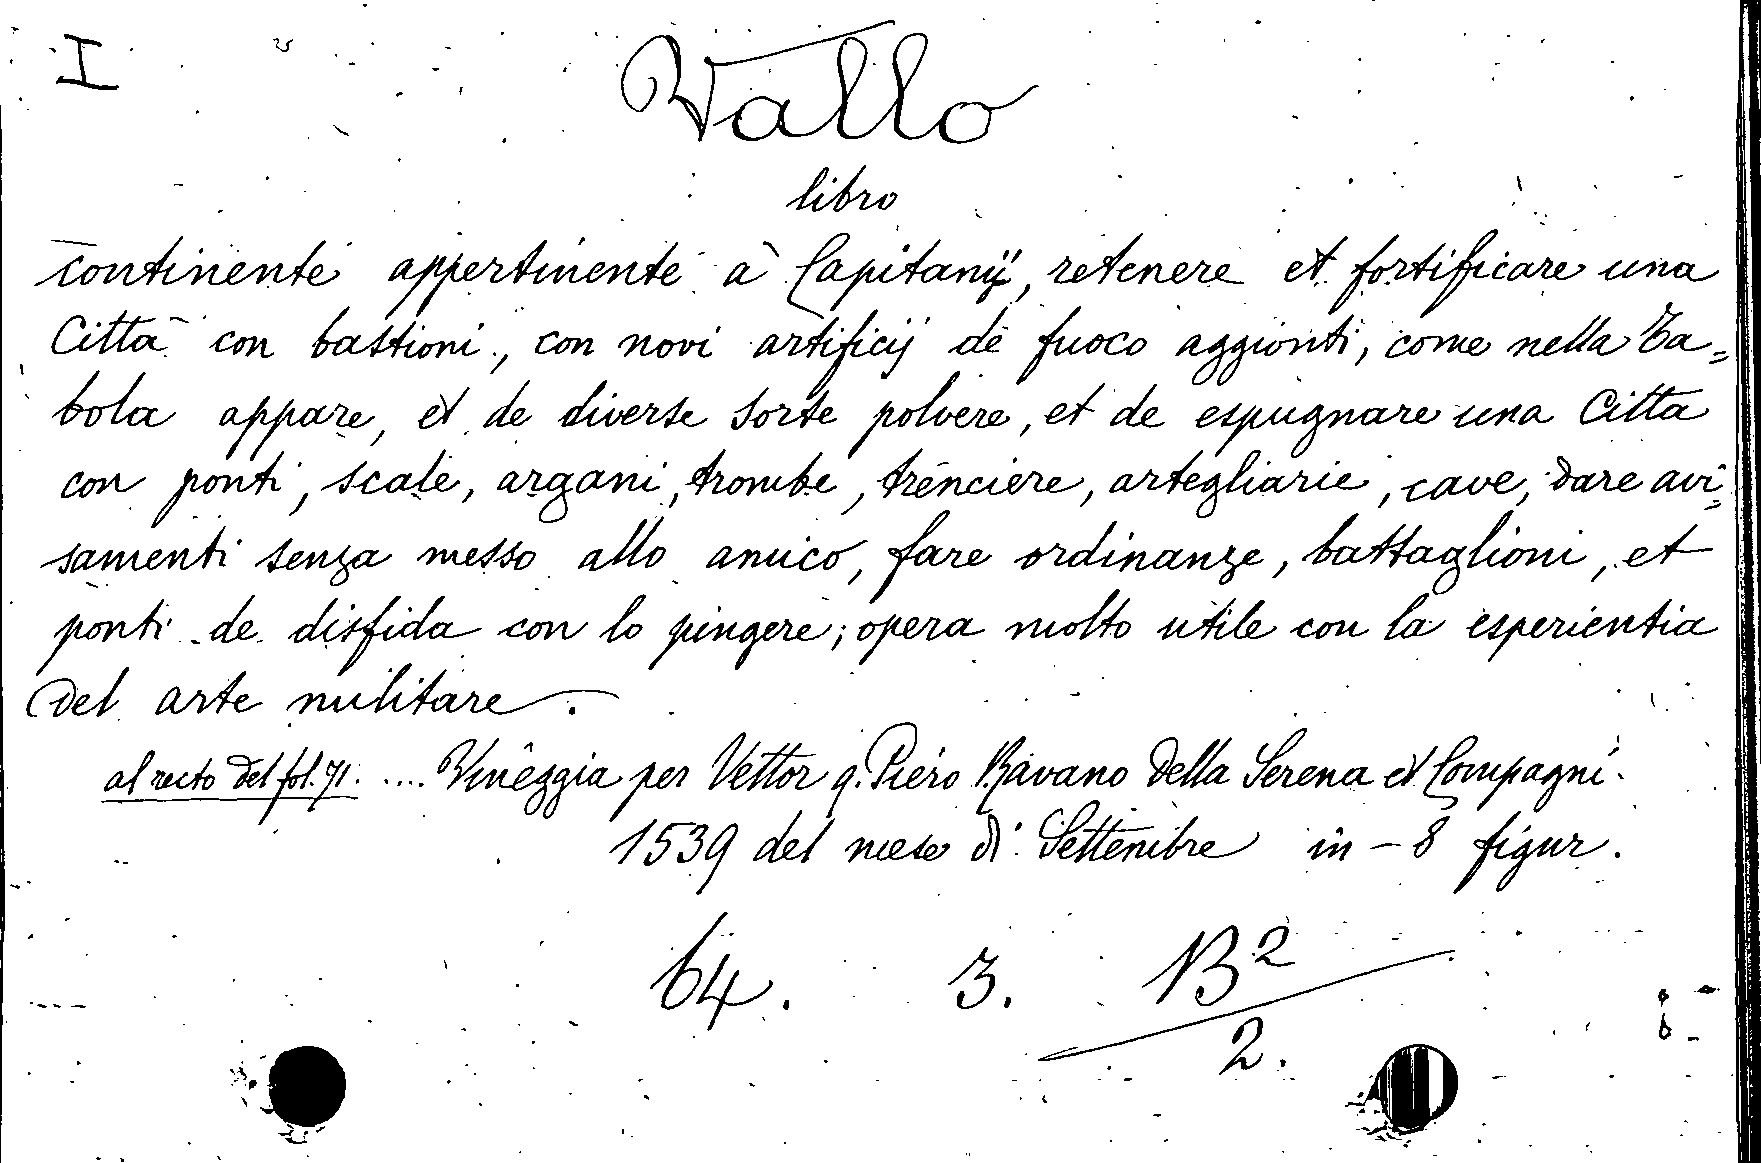 I
Vallo
libro
continente appertinente à Capitanij, retenere et fortificare una
Città con bastioni, con novi artificij de fuoco aggionti, come nella Ta=
bola appare, et de diverse sorte polvere, et de espugnare una Citta
con ponti, scale, argani, trombe, trenciere, artegliarie, cave, dare avi=
samenti senza messo allo amico, fare ordinanze, battaglioni, et
ponti de disfida con lo pingere; opera molto utile con la esperientia
del arte militare.
al recto del fol. 71. .... Vineggia per Vettor q. Piero Ravano della Serena et Compagni.
1539 del mese di Settembre in-8 figur.
64. 3. B2
2.